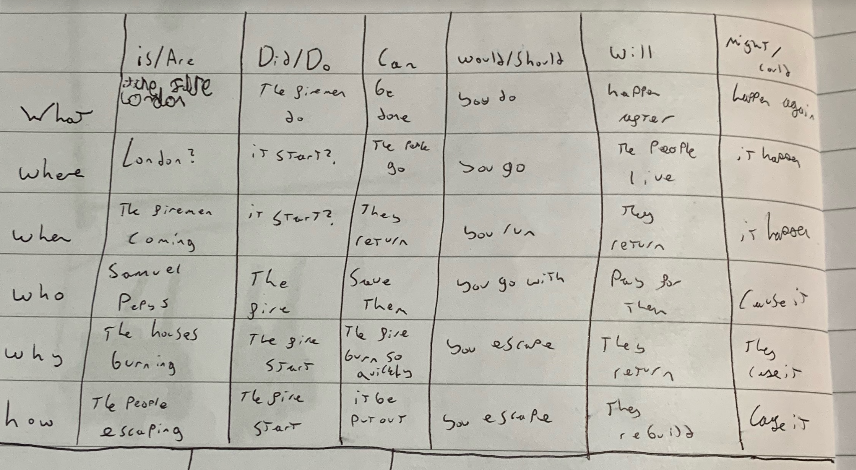 is/Are Did/Do Can would/should Will might/could
What London The firemen do be done you do happen after happen again
where London? it start? The people go you go The people live it happen
when The firemen coming it start? They return you run They return it happen
who Samuel Pepys The fire Save Them you go with Pay for Them Cause it
why The houses burning The fire start The fire burn so quickly you escape They return They case it
how The people escaping The fire start it be put out you escape They rebuild Case it